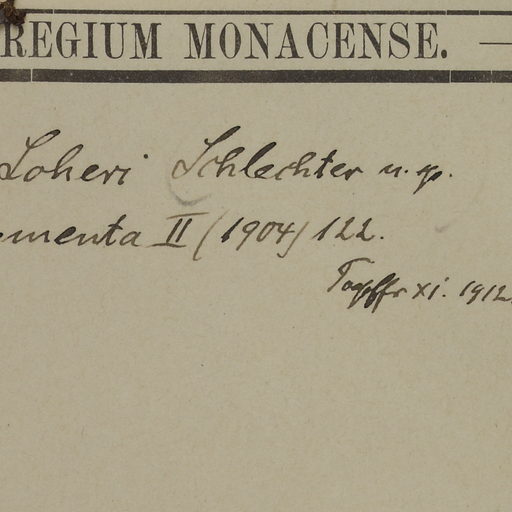 REGIUM MONACENSE. —
Loheri Schlechter n. sp.
ementa II (1904) 122.
xi. 1912